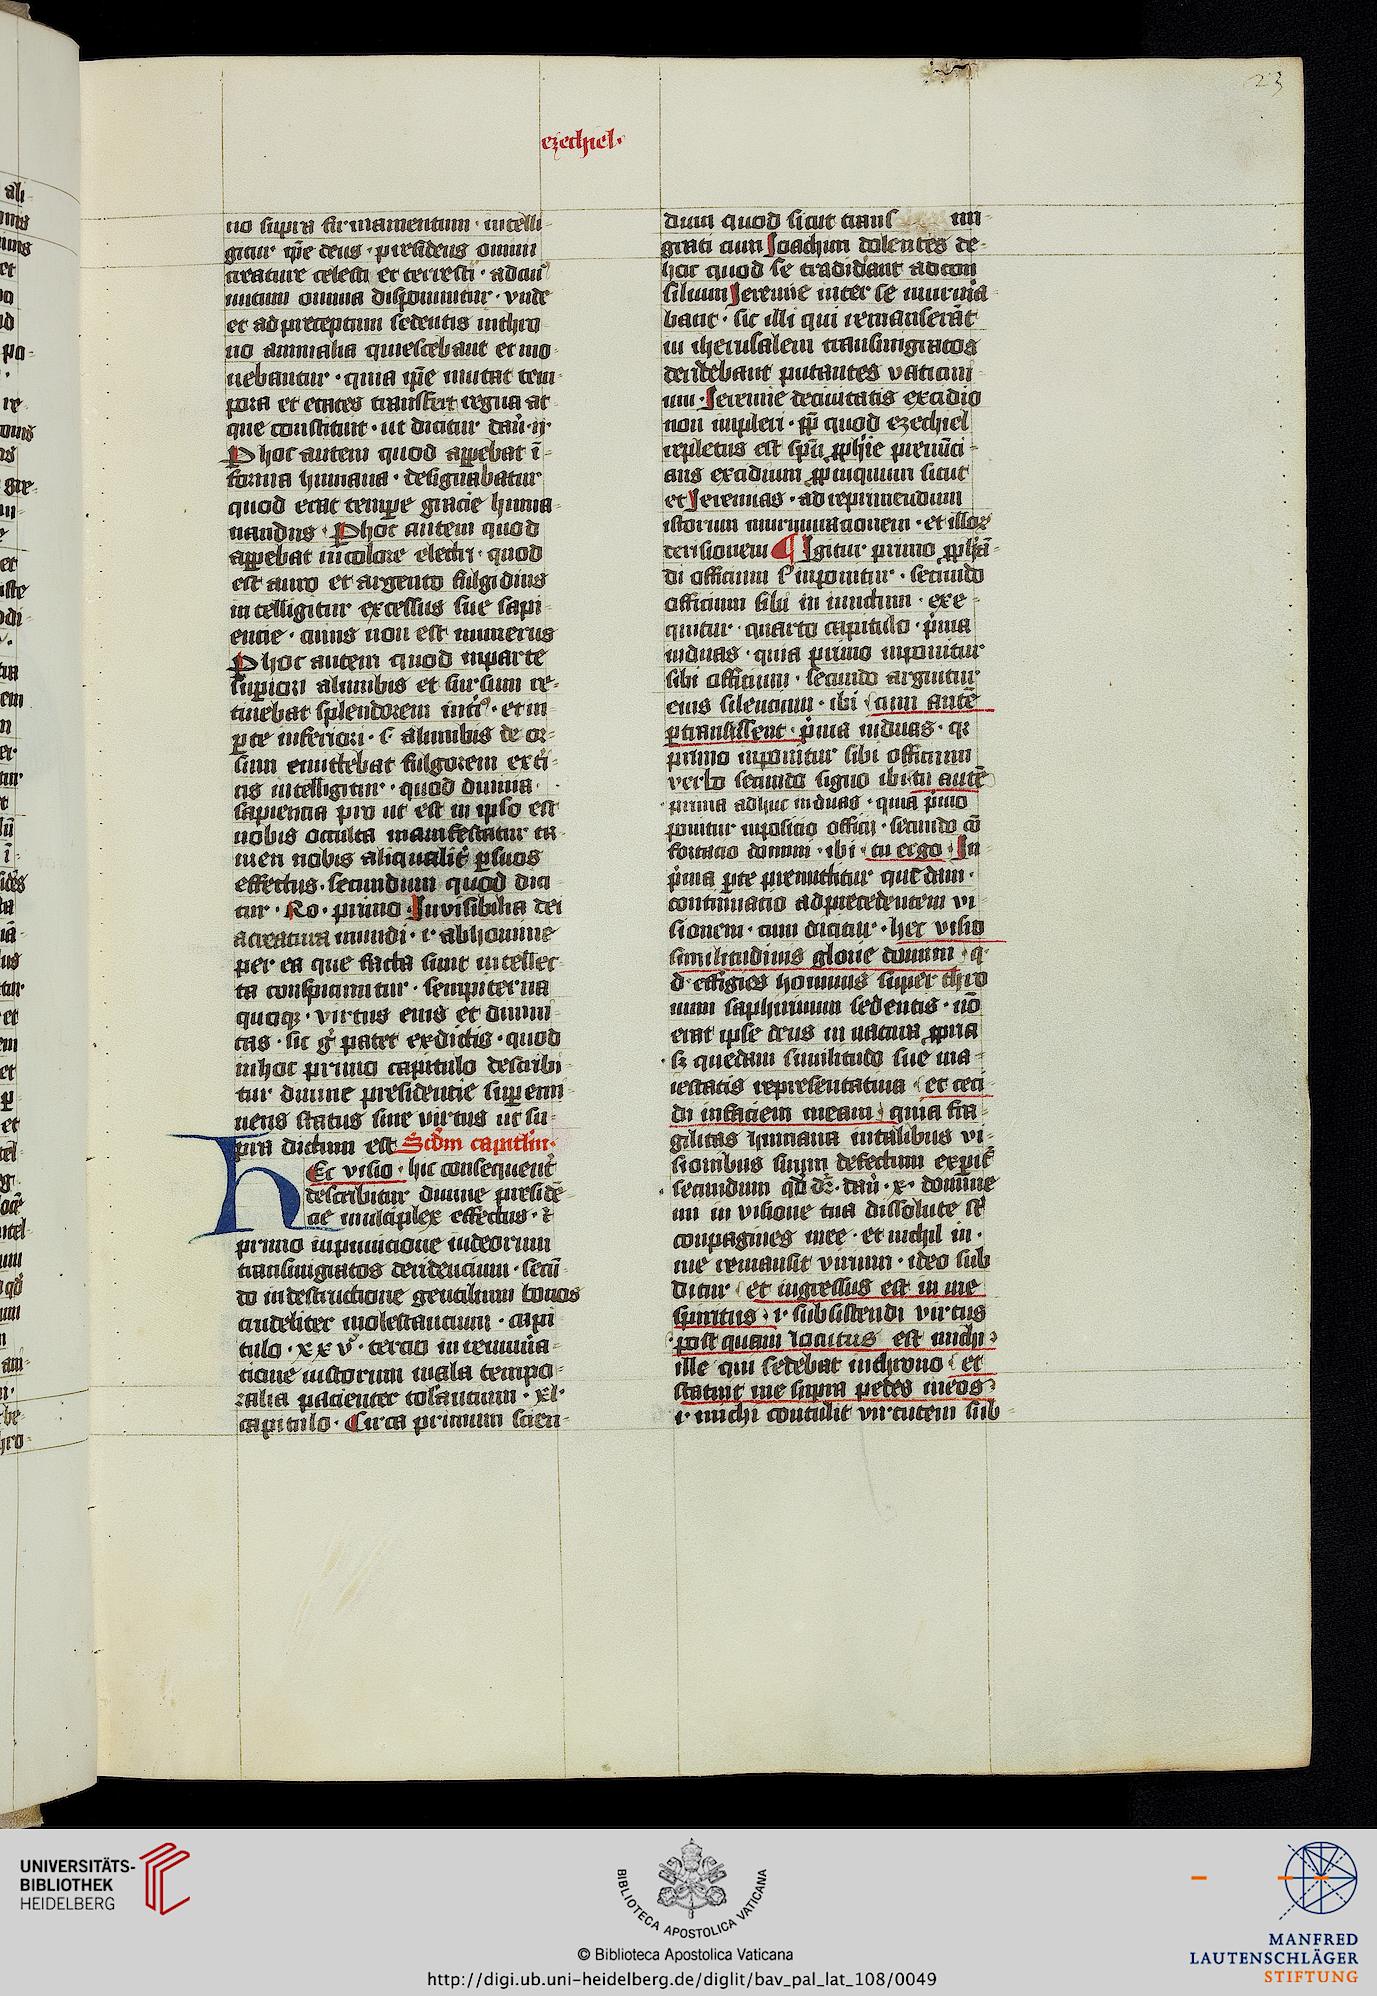 23
ezechiel·
no supra firmamentum · intelli-
gitur ip̄e deus · presidens omni
creature celesti et terrestri · ad cuiꝰ
nutum omnia disponuntur · vnde
et ad preceptum sedentis in thro-
no animalia quiescebant et mo-
uebantur · quia ip̄e mutat tem-
pora et etates transfert regna at-
que constituit · ut dicitur dañ · ii·
Phoc autem quod apꝑebat ī-
forma humana · designabatur
quod erat tempore gracie huma-
nandus · Phoc autem quod
apꝑebat in colore electri · quod
est auro et argento fulgidius
intelligitur excessus sue sapi-
encie · cuius non est numerus
Phoc autem quod in parte
suꝑiori a lumbis et sursum re-
tinebat splendorem intiꝰ · et in
ꝑte inferiori · s· a lumbis de or-
sum emittebat fulgorem exte-
ris intelligitur · quod diuina
sapiencia pro ut est in ipso est
nobis occulta manifestatur ta-
men nobis aliqualit̄ ꝑ suos
effectus · secundum quod dici-
tur · Ro · primo · Inuisibilia dei
a creatura mundi · i· ab homine
per ea que facta sunt intellec-
ta conspiciuntur · sempiterna
quoqꝫ · virtus eius et diuini-
tas · sic gͦ patet ex dictis · quod
in hoc primo capitulo describi-
tur diuine presidentie suꝑ emi-
nens status siue virtus ut su-
pra dictum est Scd̄m capitl̄m·
HEc visio · hic consequent̄
describitur diuine presidē-
cie multiplex effectus · et
primo in punicione iudeorum
transmigratos deridencium · secū-
do in destructione gentilium bonos
crudeliter molestancium · capi-
tulo · xxv° · tercio in remūa-
cione iustorum mala tempo-
ralia pacienter tolancium · xl·
capitulo · Circa primum scien-
dum quod sicut trans mi-
grati cum Joachim dolentes de-
hoc quod se tradidāut ad con-
silium Jeremie inter se murmū-
bant · sic illi qui remanserāt
in iherusalem transmigratos
deridebant putantes vaticini-
um · Jeremie de ciuitatis excidio
non impleri · pp̄ quod ezechiel
repletus est spū ꝓph̄ie prenūci-
ans excidium ꝓpinquum sicut
et Jeremias · ad reprimendum
istorum murmuracionem · et illoꝝ
derisionem ¶ Igitur primo ꝓph̄ā-
di officium s' inponitur · secundo
officium sibi in iunctum · exe-
quitur · quarto capitulo · p̄ma
in duas · quia primo inponitur
sibi officium · secundo arguitur
eius silencium · ibi · cum autē
ꝑtransissent · p̄ma in duas · qꝛ
primo inponitur sibi officium
verbo secundo signo ibi tu autē
prima adhuc in duas · quia p̄mo
ponitur inposicio officij · secundo cō-
fortacio domini · ibi · tu ergo · In
p̄ma ꝑte premittitur quedam·
continuacio ad precedentem vi-
sionem · cum dicitur · hec visio
similitudinis glorie domini · q·
d· effigies hominis super thro-
num saphirinum sedentis · nō
erat ipse deus in natura ꝓpria
sꝫ quedam similitudo sue ma-
iestatis representatiua · et ceci-
di in faciem meam · quia fra-
gilitas humana in talibus vi-
sionibus suum defectum experit̄
secundum qđ dꝛ · dañ · x · domine
mi in visione tua dissolute sūt
conpagines mee · et nichil in·
me remansit virium · ideo sub
ditur · et ingressus est in me
spiritus · i· subsistendi virtus
post quam locutus est michi
ille qui sedebat in throno · et
statuit me supra pedes meos
i· michi contulit virtutem sub-
UNIVERSITÄTS-
BIBLIOTHEK
HEIDELBERG
BIBLIOTECA APOSTOLICA VATICANA
© Biblioteca Apostolica Vaticana
http://digi.ub.uni-heidelberg.de/diglit/bav_pal_lat_108/0049
MANFRED
LAUTENSCHLÄGER
STIFTUNG